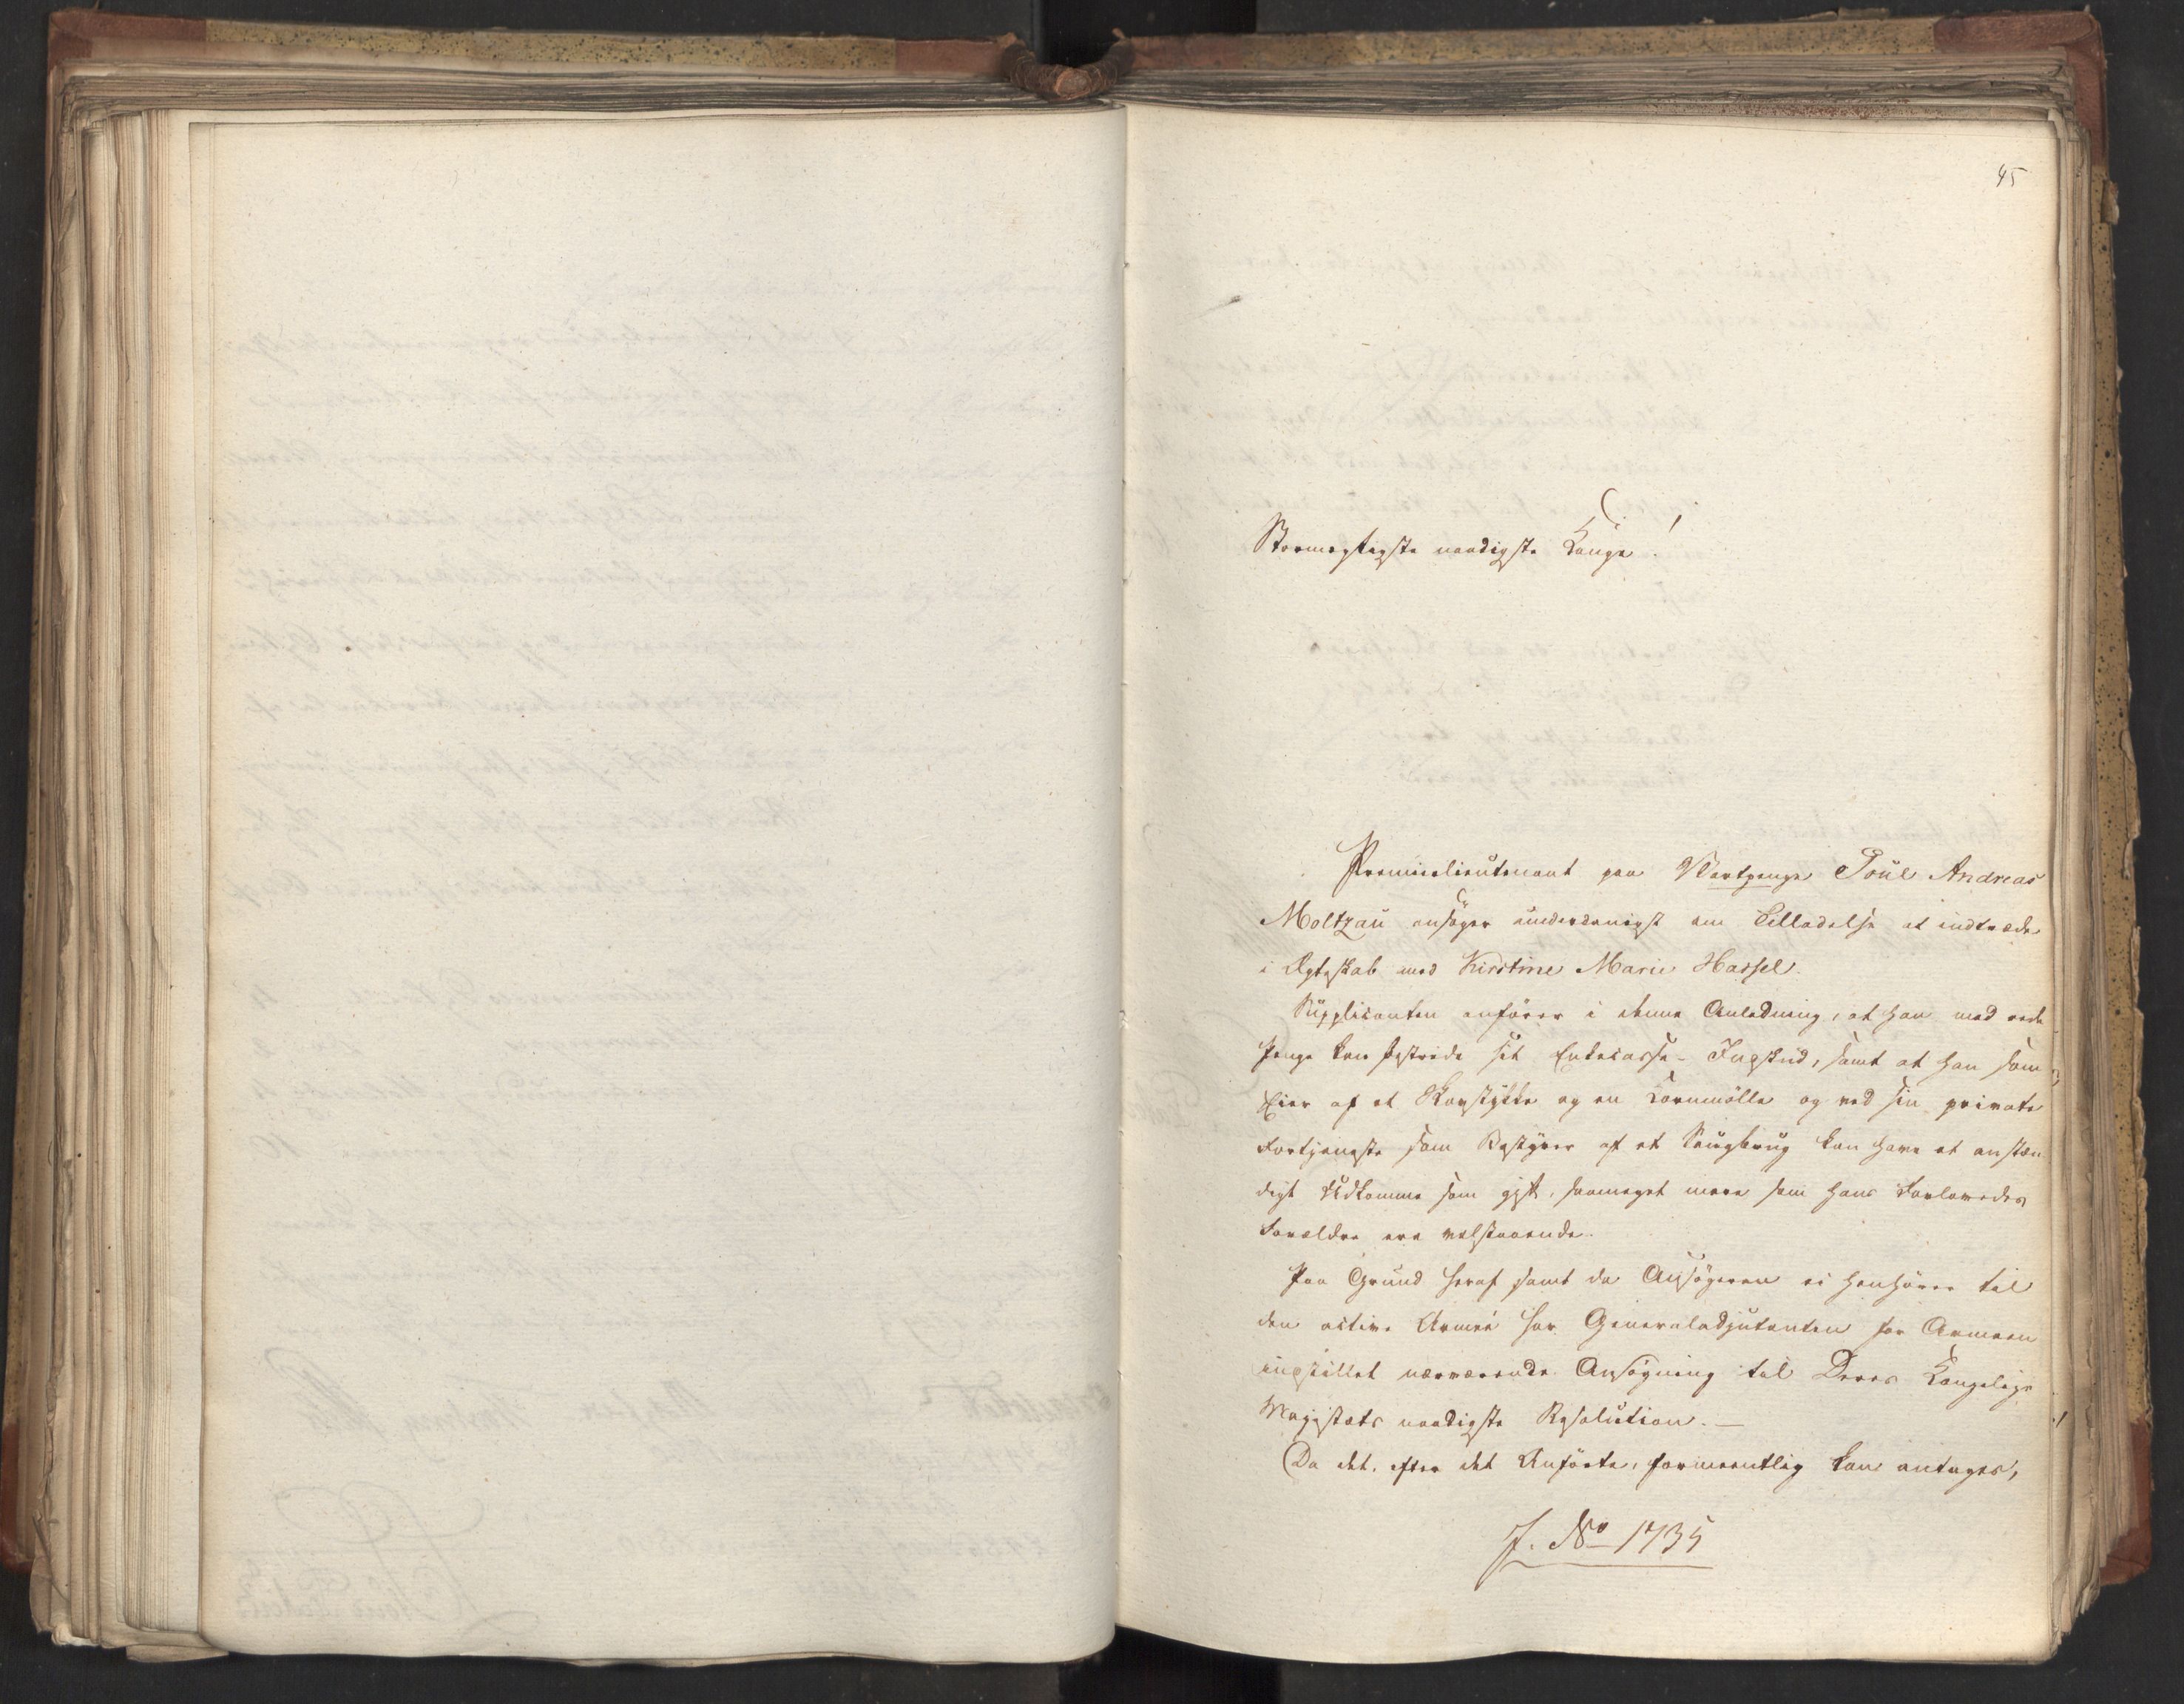 45
Stormægtigste naadigste Konge!
Premierlieutenant paa Vartpenge Poul Andreas
Moltzau ansöger underdanigst om Tilladelse at indtræde
i Ægteskab med Kirstine Marie Hassel.
Supplicanten anförer i denne Anledning, at han med rede
Penge kan bestride sit Enkecasse-Indskud, samt at han som
Eier af et Skovstykke og en Kornmölle og ved sin private
Fortjeneste som Bestyrer af et Saugbrug kan have et anstæn
digt Udkomme som gift, saameget mere som hans Forlovedes
Forældre ere velstaaende.
Paa Grund heraf samt da Ansögeren ei henhörer til
den active Armee har Generaladjutanten for Armeen
indstillet nærværende Ansögning til Deres Kongelige
Majestæts naadigste Resolution. —
Da det, efter det Anförte, formeentlig kan antages,
J. No 1735